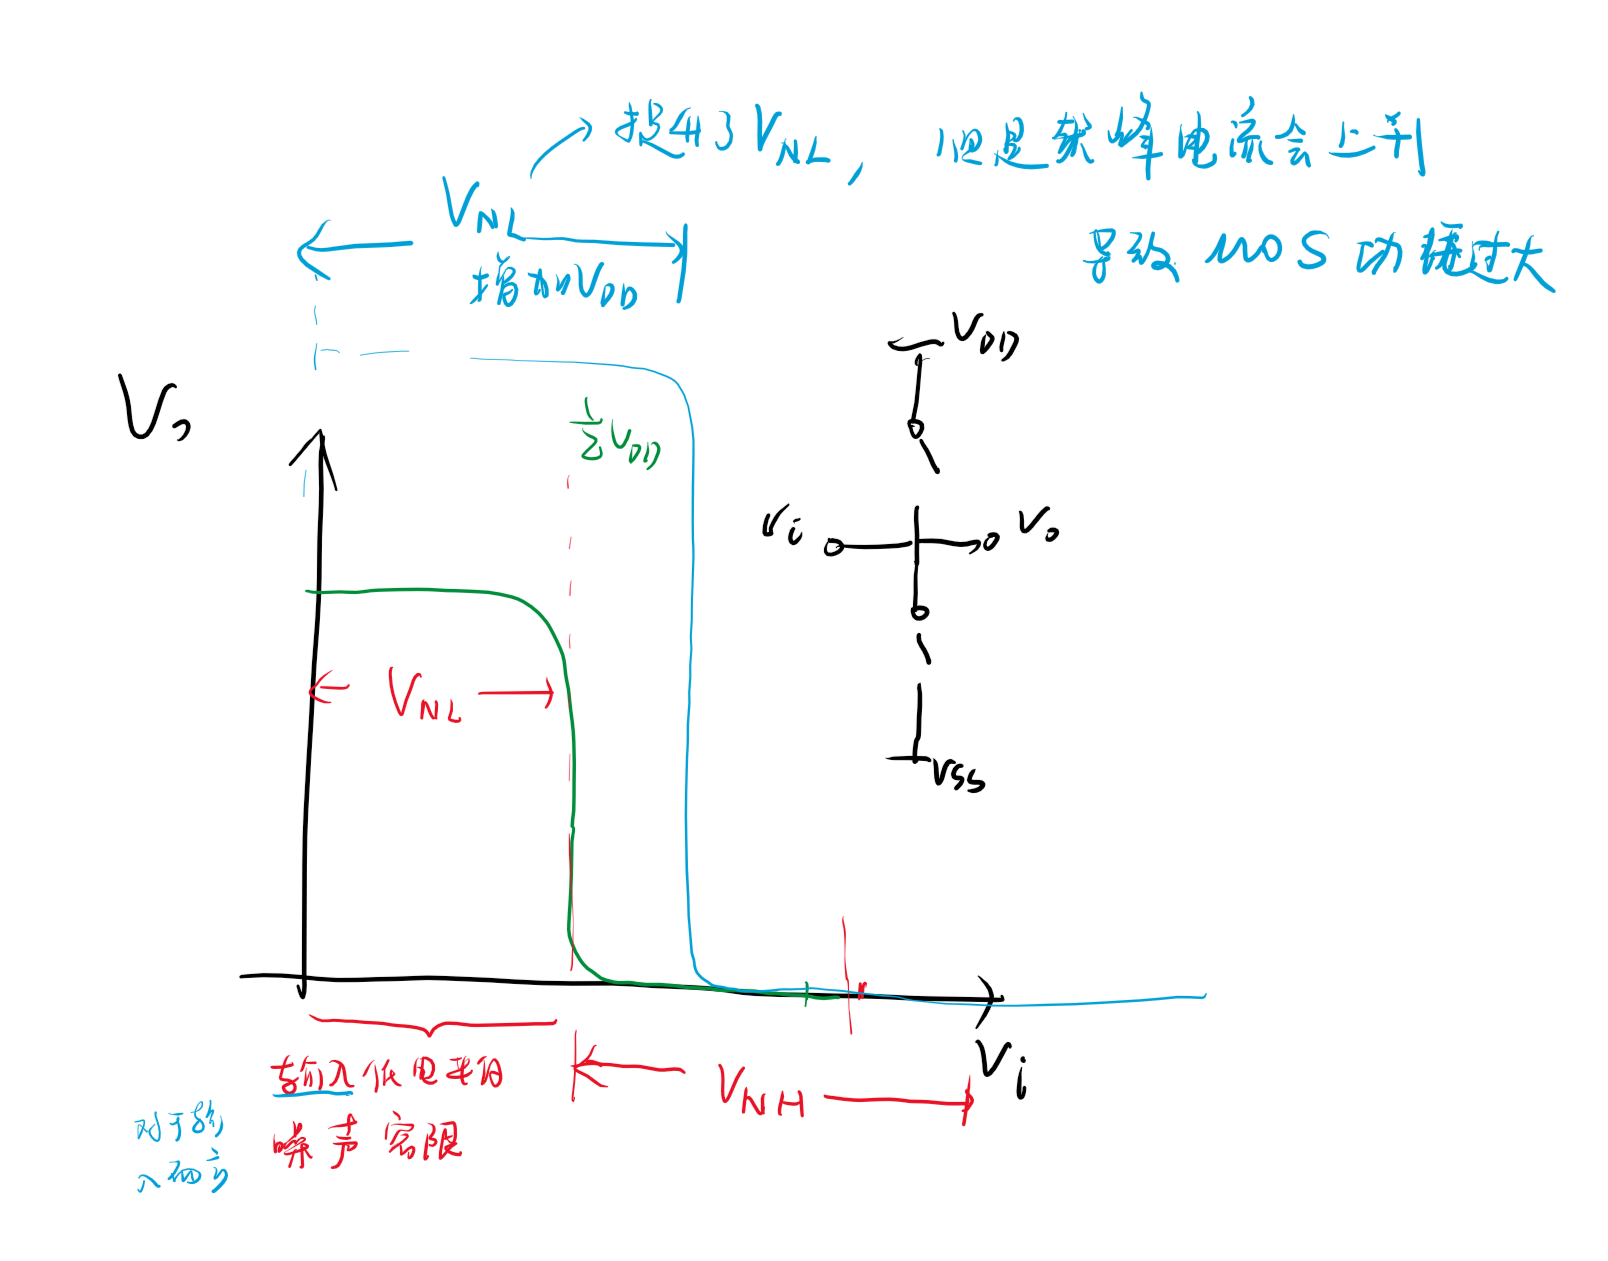 提升了VNL, 但是尖峰电流会上升
导致MOS功耗过大
VNL
增加VDD
Vo
½VDD
VDD
Vi
Vo
VSS
VNL
Vi
VNH
输入低电平的
噪声容限
对于输
入而言